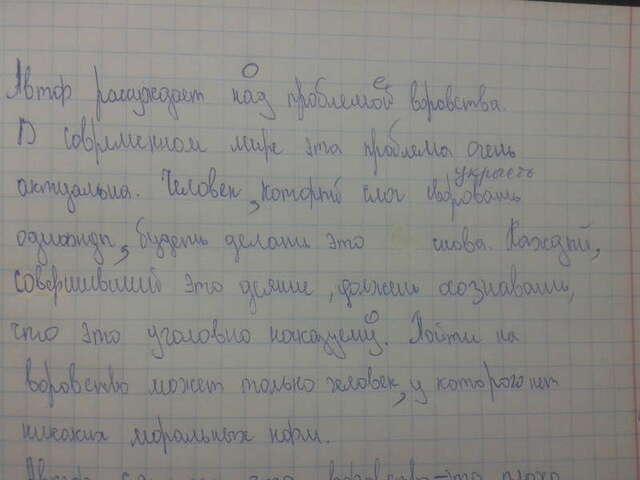 Автор рассуждает над проблемой воровства.
В современном мире эта проблема очень
актуальна. Человек, который смог своровать украсть
однажды, будет делать это снова. Каждый,
совершивший это деяние, должен осознавать,
что это уголовно наказуемо. Пойти на
воровство может только человек, у которого нет
никаких моральных норм.
Автор что воровство - это плохо